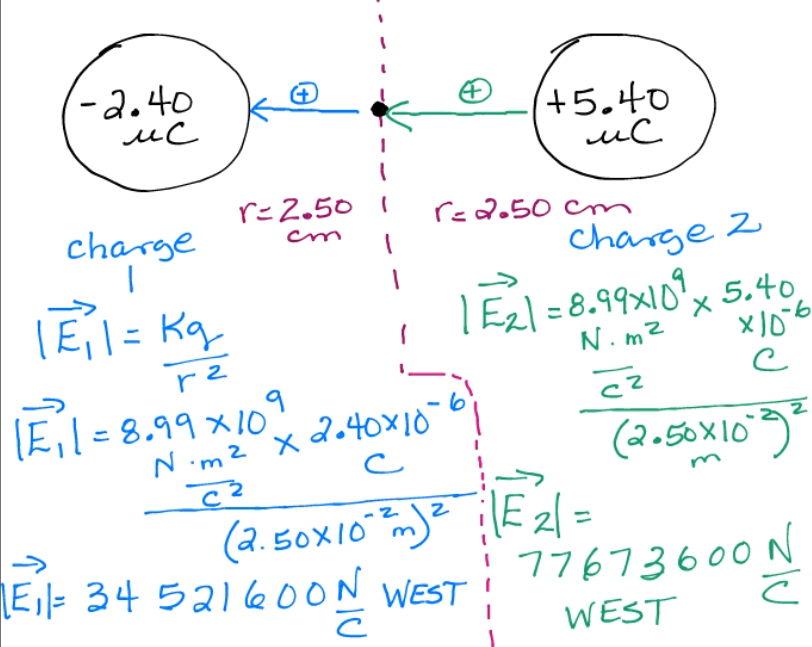 -2.40
μC
⊕
⊕
+5.40
μC
r=2.50
cm
r=2.50 cm
charge
1
charge 2
|E₁| = Kq
r²
|E₁| = 8.99 ×10⁹ × 2.40×10⁻⁶
N·m² C
C²
(2.50×10⁻²m)²
|E₁|= 34 521600 N WEST
C
|E₂| = 8.99×10⁹ × 5.40
×10⁻⁶
N.m² C
C²
(2.50×10⁻²)²
m
|E₂| =
77673600 N
C
WEST